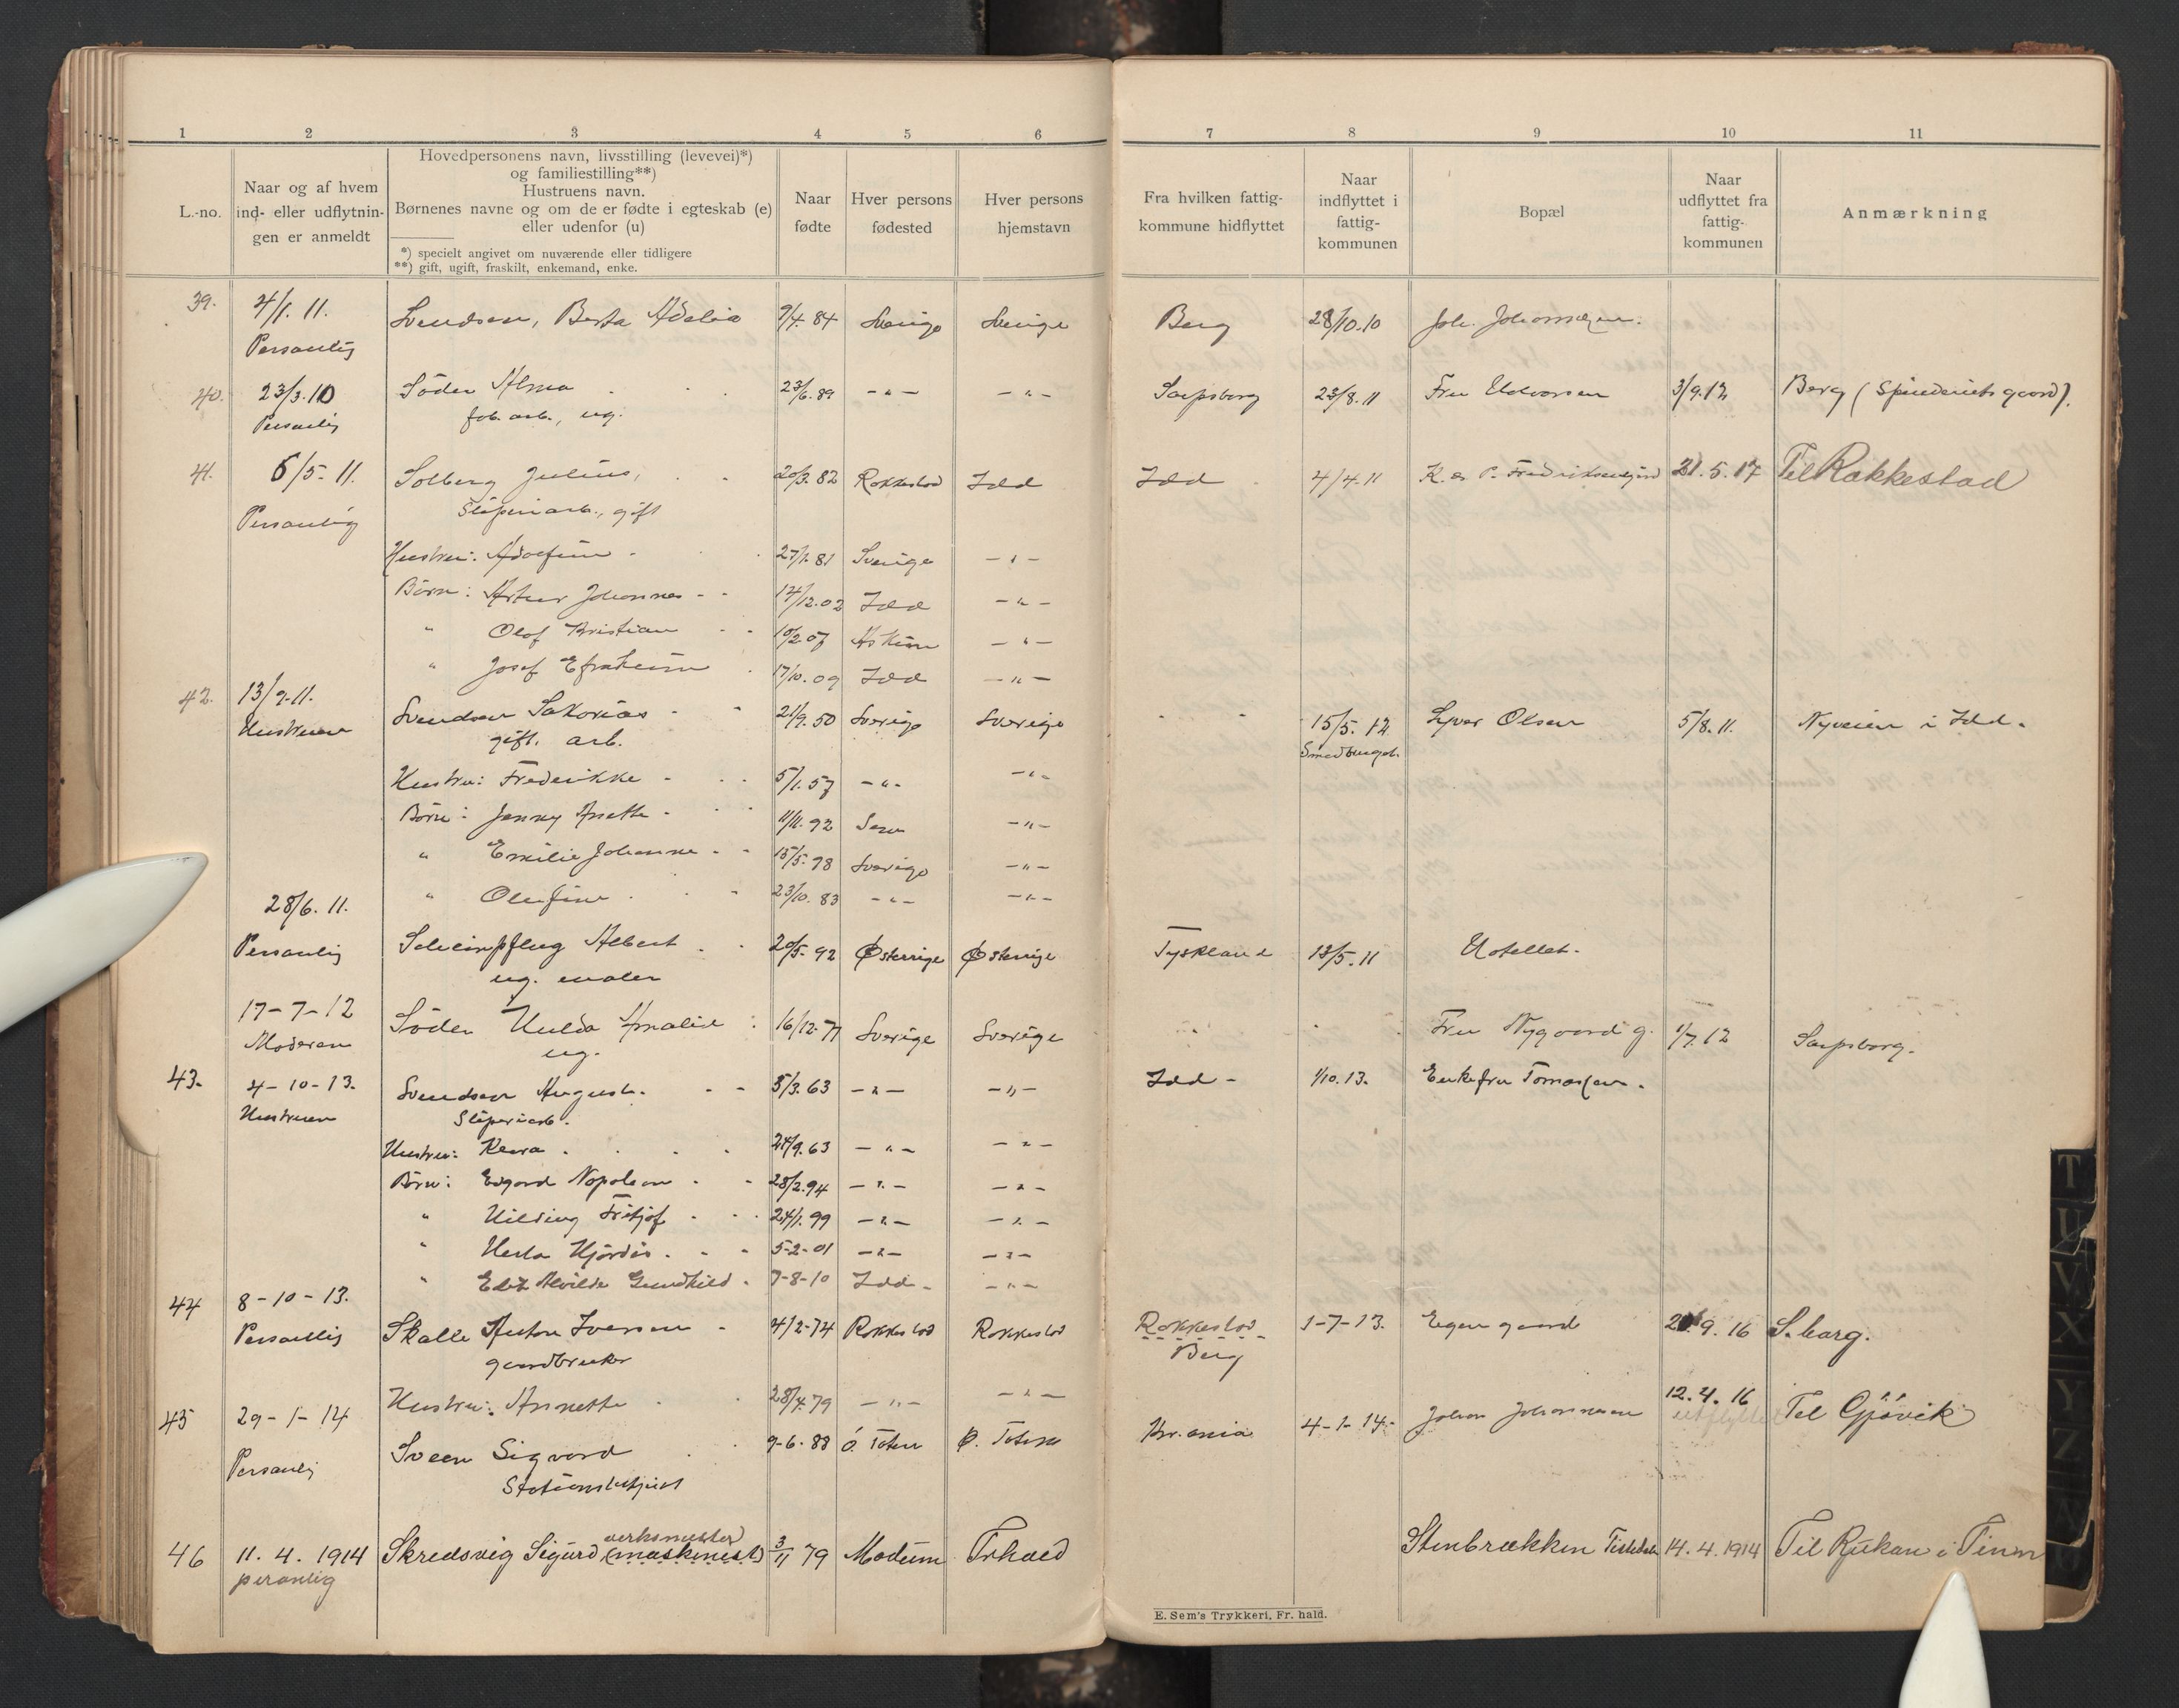 1 2 3 4 5 6 7 8 9 10 11
L.-no.
Naar og af hvem
ind- eller udflytnin-
gen er anmeldt
Hovedpersonens navn, livsstilling (levevei)*)
og familiestilling**)
Hustruens navn.
Børnenes navne og om de er fødte i egteskab (e)
eller udenfor (u)
*) specielt angivet om nuværende eller tidligere
**) gift, ugift, fraskilt, enkemand, enke.
Naar
fødte
Hver persons
fødested
Hver persons
hjemstavn
Fra hvilken fattig-
kommune hidflyttet
Naar
indflyttet i
fattig-
kommunen
Bopæl
Naar
udflyttet fra
fattig-
kommunen
Anmærkning
39. 4/1. 11. Svendsen, Berta Adelia 9/4. 84 Sverige Sverige Berg 28/10.10 Joh. Johansen.
Personlig
40. 23/3.10 Söder Alma 23/6.89 - " - - " - Sarpsborg 23/8.11 Fru Halvorsen 3/9.12 Berg (Spinderiets gaard).
Personlig fab. arb., ug.
41. 6/5-11. Solberg Julius, 20/3.82 Rakkestad Idd Idd 4/4.11 K. og P. Fredriksensgård 21.5.17 Til Rakkestad
Personlig Sliperiarb., gift
Hustru: Adolfine - 27/1.81 Sverige - " -
Börn: Artur Johannes - - 14/12.02 Idd - " -
" Olof Kristian - - 10/2.07 Askim - " -
" Josef Efraheim 17/10.09 Idd - " -
42. 13/9.11. Svendsen Sakarias - - 21/9.50 Sverige Sverige - - 15/5.12 Syver Olsen 5/8.11. Nyveien i Idd.
Hustruen gift. arb.
Hustru: Frederikke - - - 5/1.57 - " - - " -
Börn: Jenny Anette - - - 11/11.92 - " -
" Emilie Johanne - - 15/5.98 Sverige - " -
" Olufine - 23/10.83 - " - - " -
28/6.11.
Personlig Schimpflug Albert - - 20/5-92 Østerrige Østerrige Tyskland 13/5.11 Hotellet.
ug. maler
17-7-12 Söder Hulda Amalie 16/12-77 Sverige Sverige Fru Nygaard g. 1/7.12 Sarpsborg.
Moderen ug.
43. 4-10-13. Svendsen August. - - 5/3.63 - " - - " - Idd - 1/10.13. Enkefru Tomassen.
Hustruen Sliperiarb.
Hustru: Klara 24/9.63 - " - - " -
Börn: Edgard Napoleon - - 28/2.94 - " - - " -
" Hilding Fritjof - - - 24/1.99 - " - - " -
" Herta Hjördis. - - 5-2-01 - " - - " -
" Edit Alvilde Gundhild - 7-8-10 Idd - - " -
44 8-10-13. Skalle Anton Iversen - 4/2-74 Rakkestad Rakkestad Rakkestad 1-7-13. Egen gaard 21.9.16 S.barg.
Personlig gaardbruker Berg
Hustru: Annette 28/4.79 - " - - " -
45 29-1-14 Sveen Sigvard 9-6-88 Ö. Toten Ø. Toten Kr.ania 4-1-14- Johan Johannesen 12.4.16 utflyttet Til Gjøvik
Personlig Stationsbetjent
46 11. 4. 1914 Skredsvig Sigurd verksmester (maskinist) 3/11 79 Modum Frhald Stenbrækken Tistedalen 14.4.1914 Til Rjukan i Tinn
personlig
E. Sem's Trykkeri, Fr.hald.
T
U
V
X
Y
Z